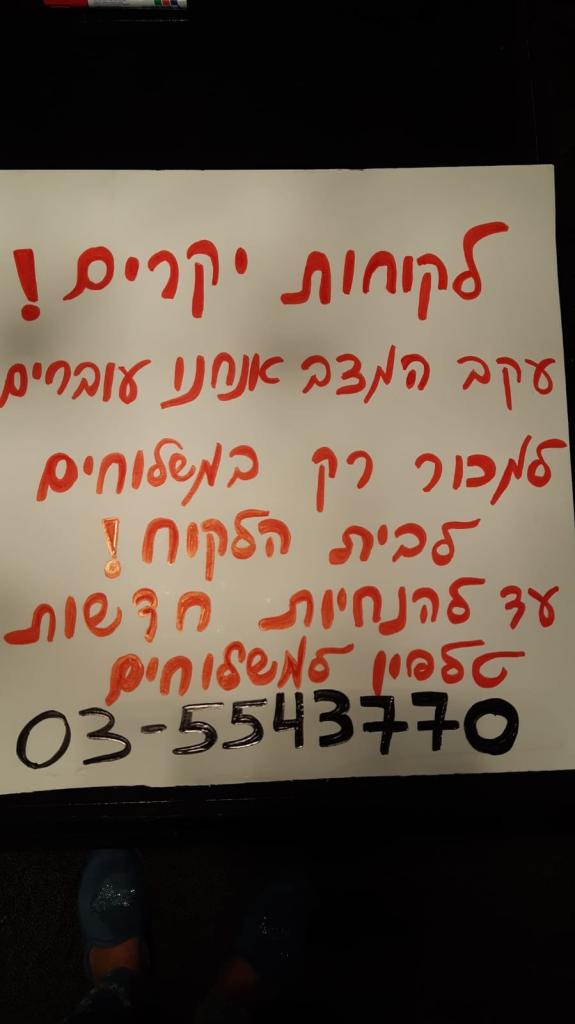 לקוחות יקרים!
עקב המצב אנחנו עוברים
למכור רק במשלוחים
לבית הלקוח!
עד להנחיות חדשות
טלפון למשלוחים
03-5543770